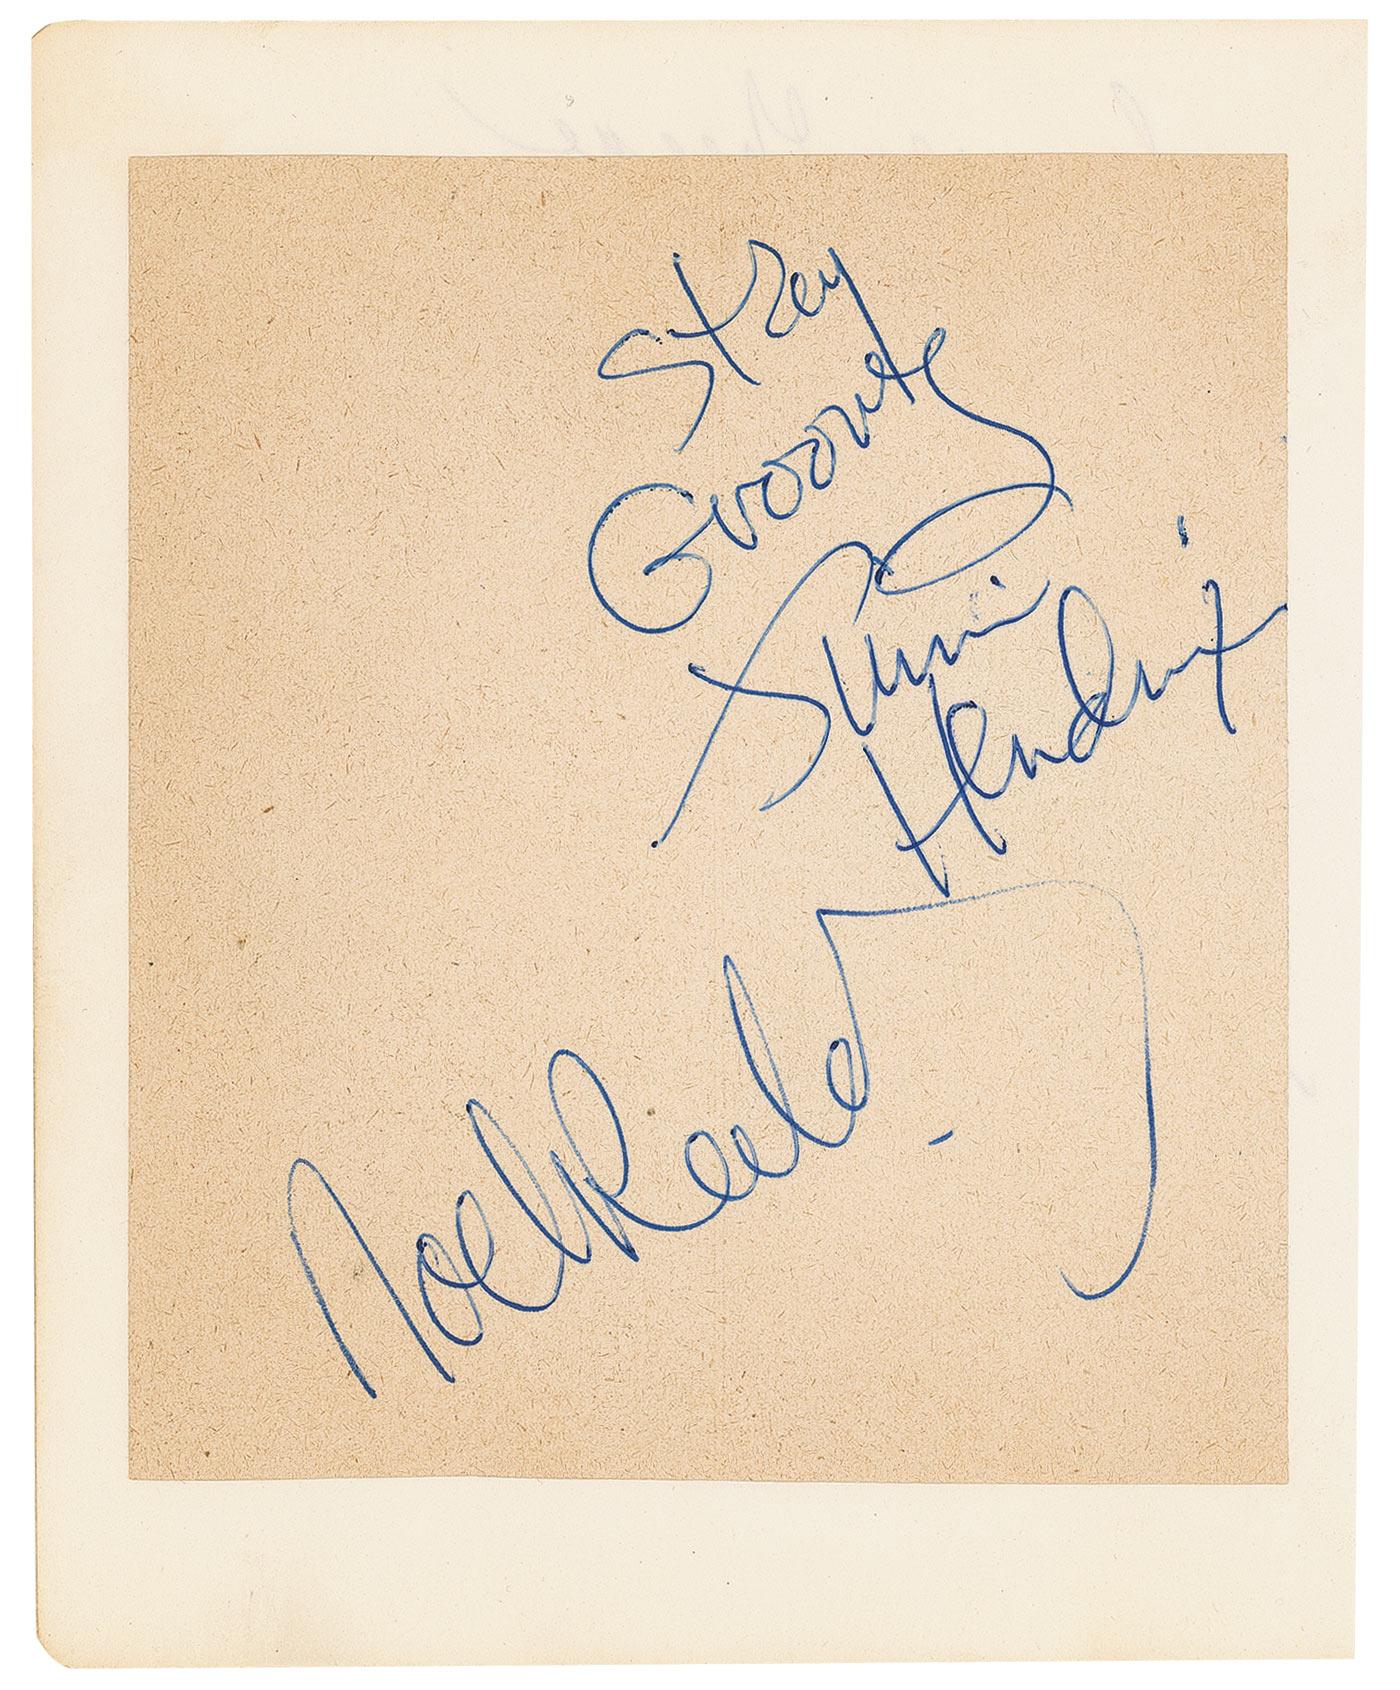 Stay
Groovy
Jimi
Hendrix
Noel Redding